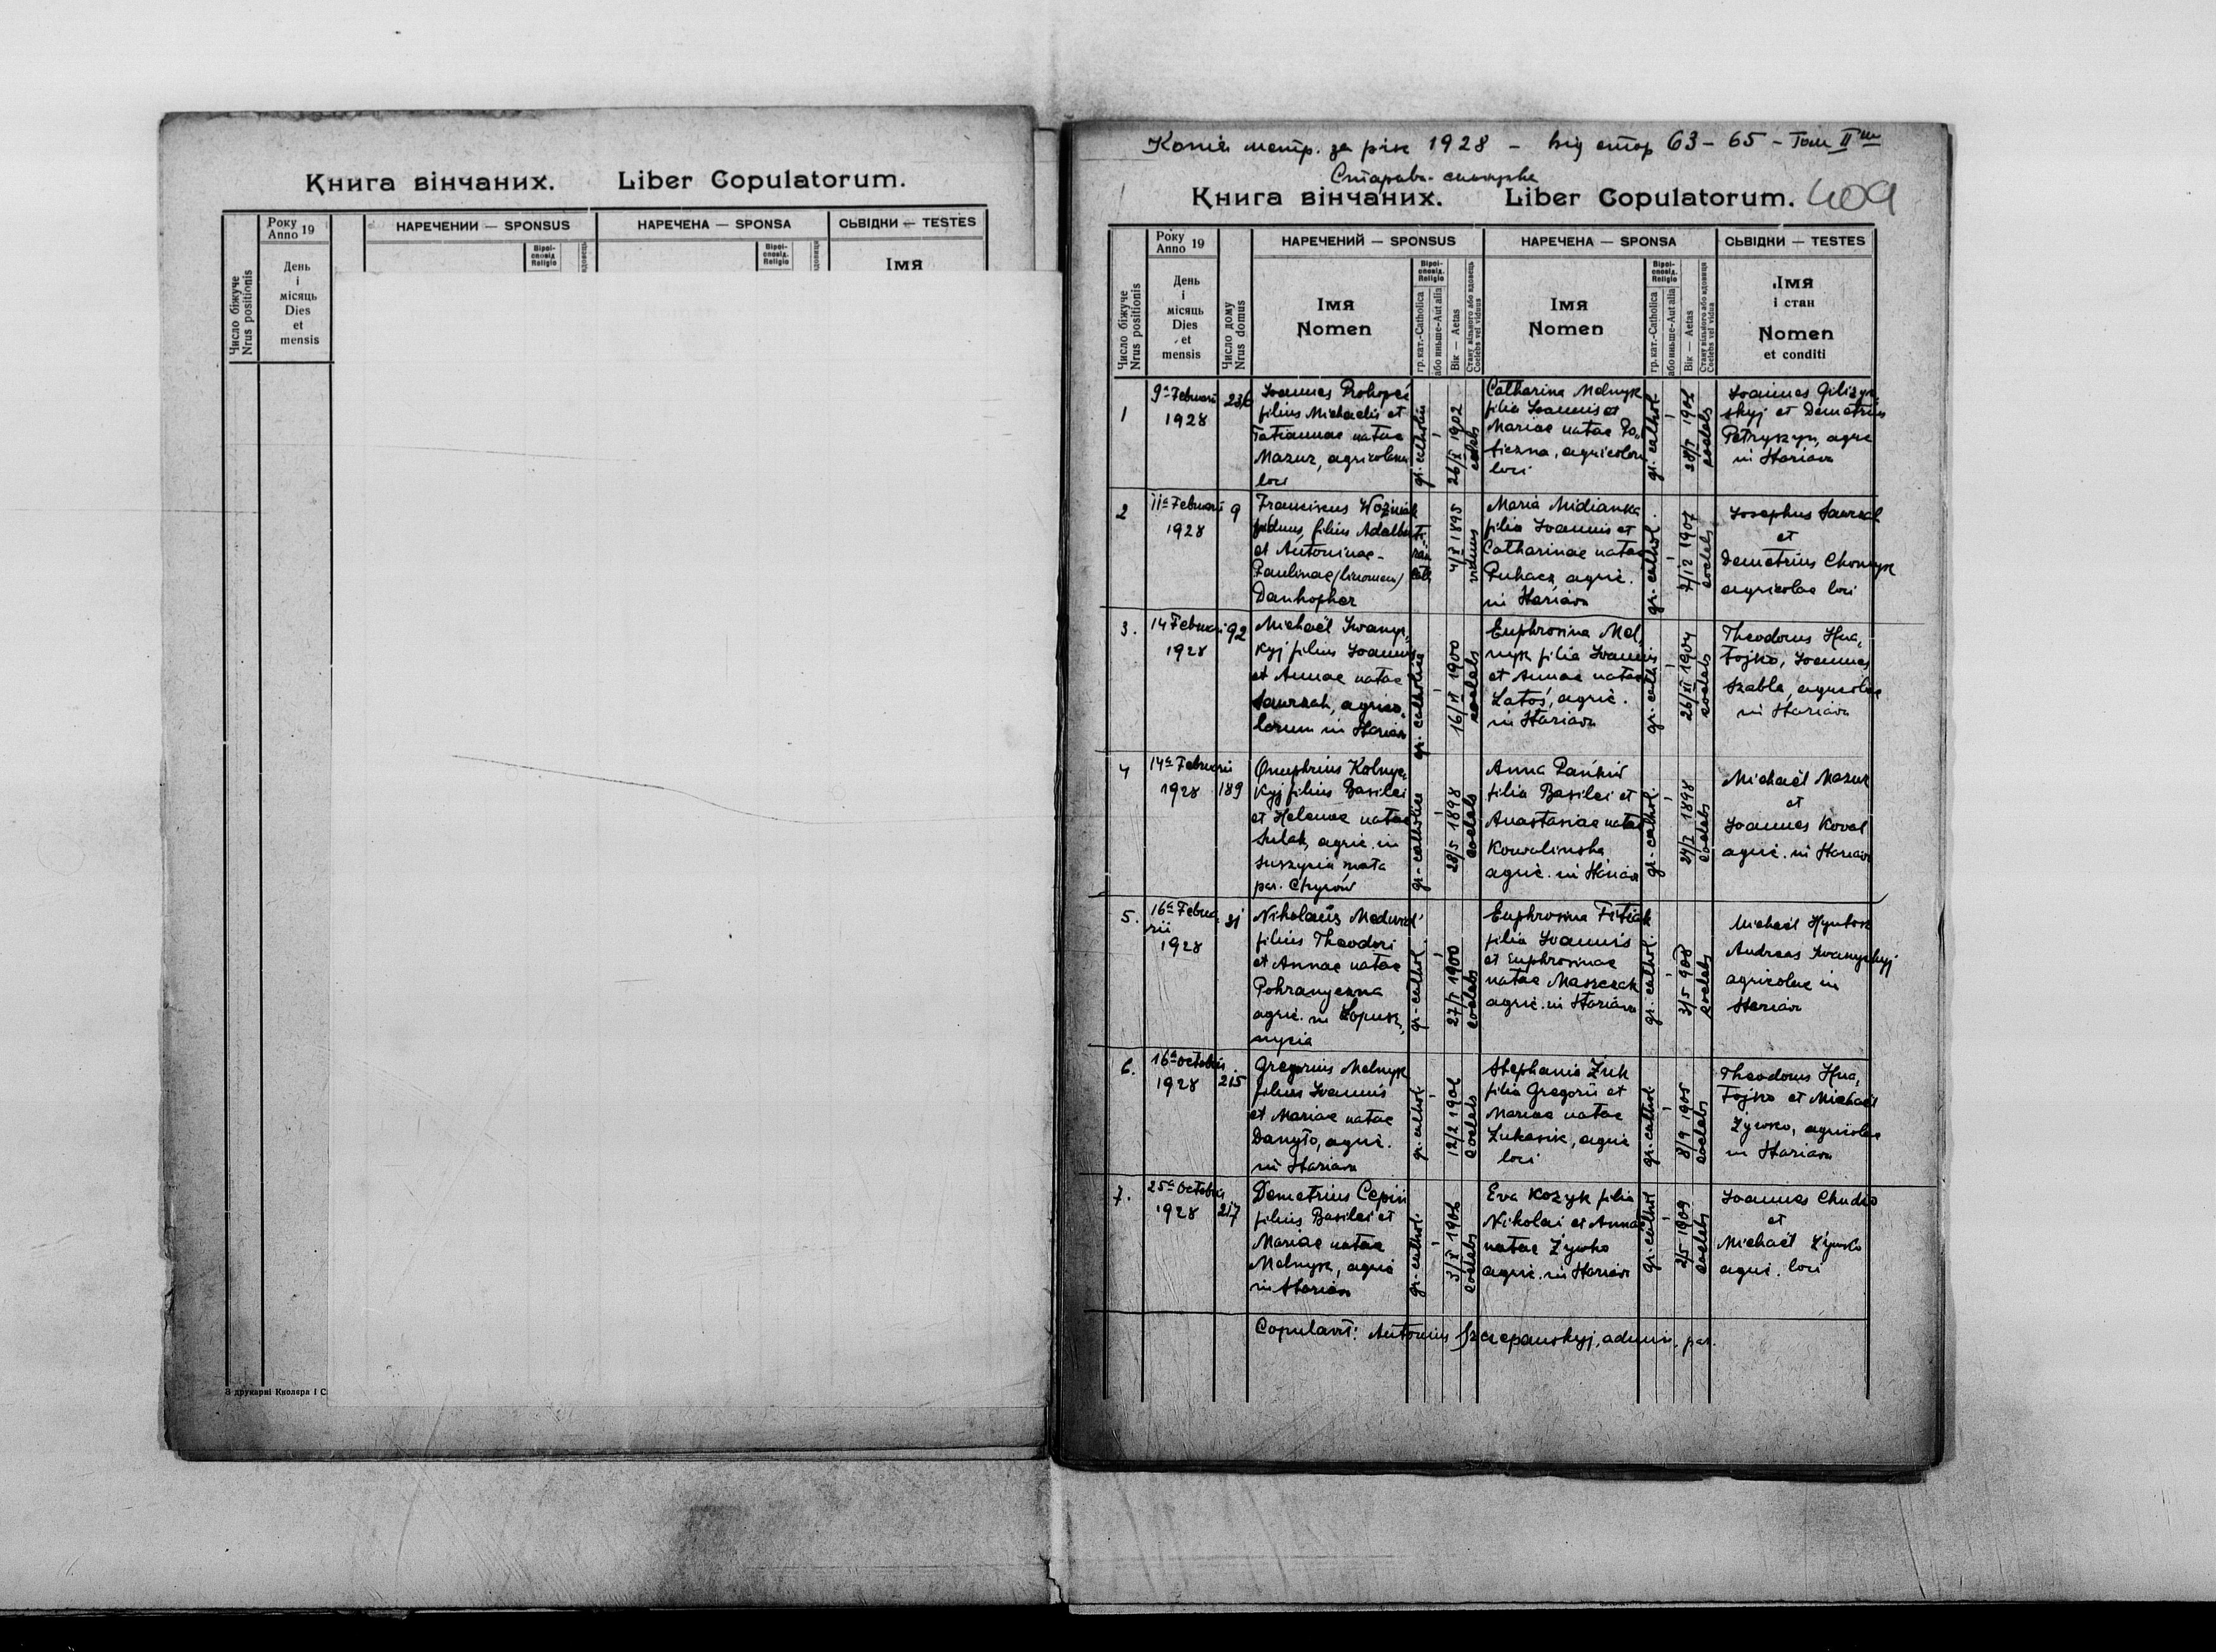 Книга вінчаних. Liber Copulatorum.
Число біжуче
Nrus positionis
Року
Anno 19
День
і
місяць
Dies
et
mensis
НАРЕЧЕНИИ — SPONSUS
НАРЕЧЕНА — SPONSA
СЬВІДКИ — TESTES
Віроі-
сповід.
Religio
Віроі-
сповід.
Religio
Імя
З друкарні Кнолєра і С
Копія метр. за рік 1928 - від стор 63-65 - Том II
Старява
Книга вінчаних. Liber Copulatorum. 409
Число біжуче
Nrus positionis
Року
Anno 19
День
і
місяць
Dies
et
mensis
Число дому
Nrus domus
НАРЕЧЕНИЙ — SPONSUS
Імя
Nomen
Віроі-
сповід.
Religio
гр. кат.-Catholica
або иньше-Aut alia
Вік — Aetas
Стану вільного або вдовець
Coelebs vel viduus
НАРЕЧЕНА — SPONSA
Імя
Nomen
Віроі-
сповід.
Religio
гр. кат.-Catholica
або иньше-Aut alia
Вік — Aetas
Стану вільного або вдовиця
Coelebs vel vidua
СЬВІДКИ — TESTES
Імя
і стан
Nomen
et conditi
1
9a Februarii
1928
236
Joannes Prokopeć
filius Michaelis et
Tatiannae natae
Mazur, agricolarum
loci
gr. catholica
26/X 1902
coelebs
Catharina Melnyk
filia Joannis et
Mariae natae Po-
, agricolarum
loci
gr. cathol.
28/V 1902
coelebs
Joannes Giliszyn-
skyj et Demetrius
Petryszyn, agric
in Stariava
2
11a Februarii
1928
9
Franciscus Woźniak
viduus, filius Adalberti
et Antoninae-
Paulinae (binomen)
Danhofher
4/X 1895
viduus
Maria Midianka
filia Joannis et
Catharinae natae
Puhacz, agric.
in Stariava
gr. cathol.
7/12 1907
coelebs
Josephus Sawczak
et
Demetrius Chomyk
agricolae loci
3.
14 Februarii
1928
92
Michaël Iwanyc-
kyj filius Joannis
et Annae natae
Sawczak, agrico-
larum in Stariava
gr. catholica
16/XI 1900
coelebs
Euphrosina Mel-
nyk filia Joannis
et Annae natae
Latoś, agric.
in Stariava
gr. cathol.
26/XI 1904
coelebs
Theodorus Hna-
tojko, Joannes
Szabla, agricolae
in Stariava
4
14a Februarii
1928
189
Onuphrius Kolnyc-
kyj filius Basilei
et Helenae natae
Sulak, agric. in
Suszycia mała
par. Chyrów
gr. catholica
28/5 1898
coelebs
Anna Pańkiw
filia Basilei et
Anastasiae natae
Kowalinska
agric. in Stariava
gr. cathol.
24/I 1898
coelebs
Michaël Mazur
et
Joannes Koval
agric. in Stariava
5.
16a Februa-
rii
1928
31
Nikolaus Medwid'
filius Theodori
et Annae natae
Pohranyczna
agric. in Łopusz-
nycia
gr. cathol.
27/I 1900
coelebs
Euphrosina Fitiak
filia Joannis
et Euphrosinae
natae Maszczak
agric. in Stariava
gr. cathol.
3/5 908
coelebs
Michaël
Andreas Iwanyckyj
agricolae in
Stariava
6.
16a Octobris
1928
215
Gregorius Melnyk
filius Joannis
et Mariae natae
Danyło, agric.
in Stariava
gr. cathol.
12/2 1902
coelebs
Stephania Żuk
filia Gregorii et
Mariae natae
Łukasik, agric
loci
gr. cathol.
8/9 1905
coelebs
Theodorus Hna-
tojko et Michaël
Żywko, agricolae
in Stariava
7.
25a Octobris
1928
217
Demetrius Cepiń
filius Basilei et
Mariae natae
Melnyk, agric
in Stariava
gr. cathol.
3/X 1906
coelebs
Eva Kozyk filia
Nikolai et Annae
natae Żywko
agric. in Stariava
gr. cathol
2/5 1909
coelebs
Joannes Chudio
et
Michaël Żywko
agric. loci
Copulavit: Antonius Szczepanskyj, admin. par.